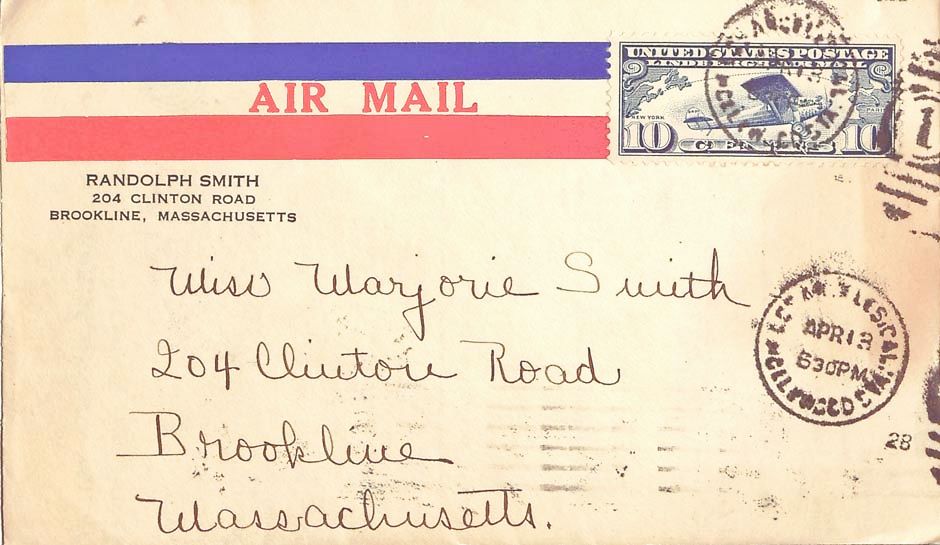 UNITED STATES POSTAGE
LINDBERGH AIR MAIL
NEW YORK
PARIS
10 CENTS 10
AIR MAIL
RANDOLPH SMITH
204 CLINTON ROAD
BROOKLINE, MASSACHUSETTS
Miss Marjorie Smith
204 Clinton Road
Brookline
Massachusetts.
APR 13
6 30 PM
28